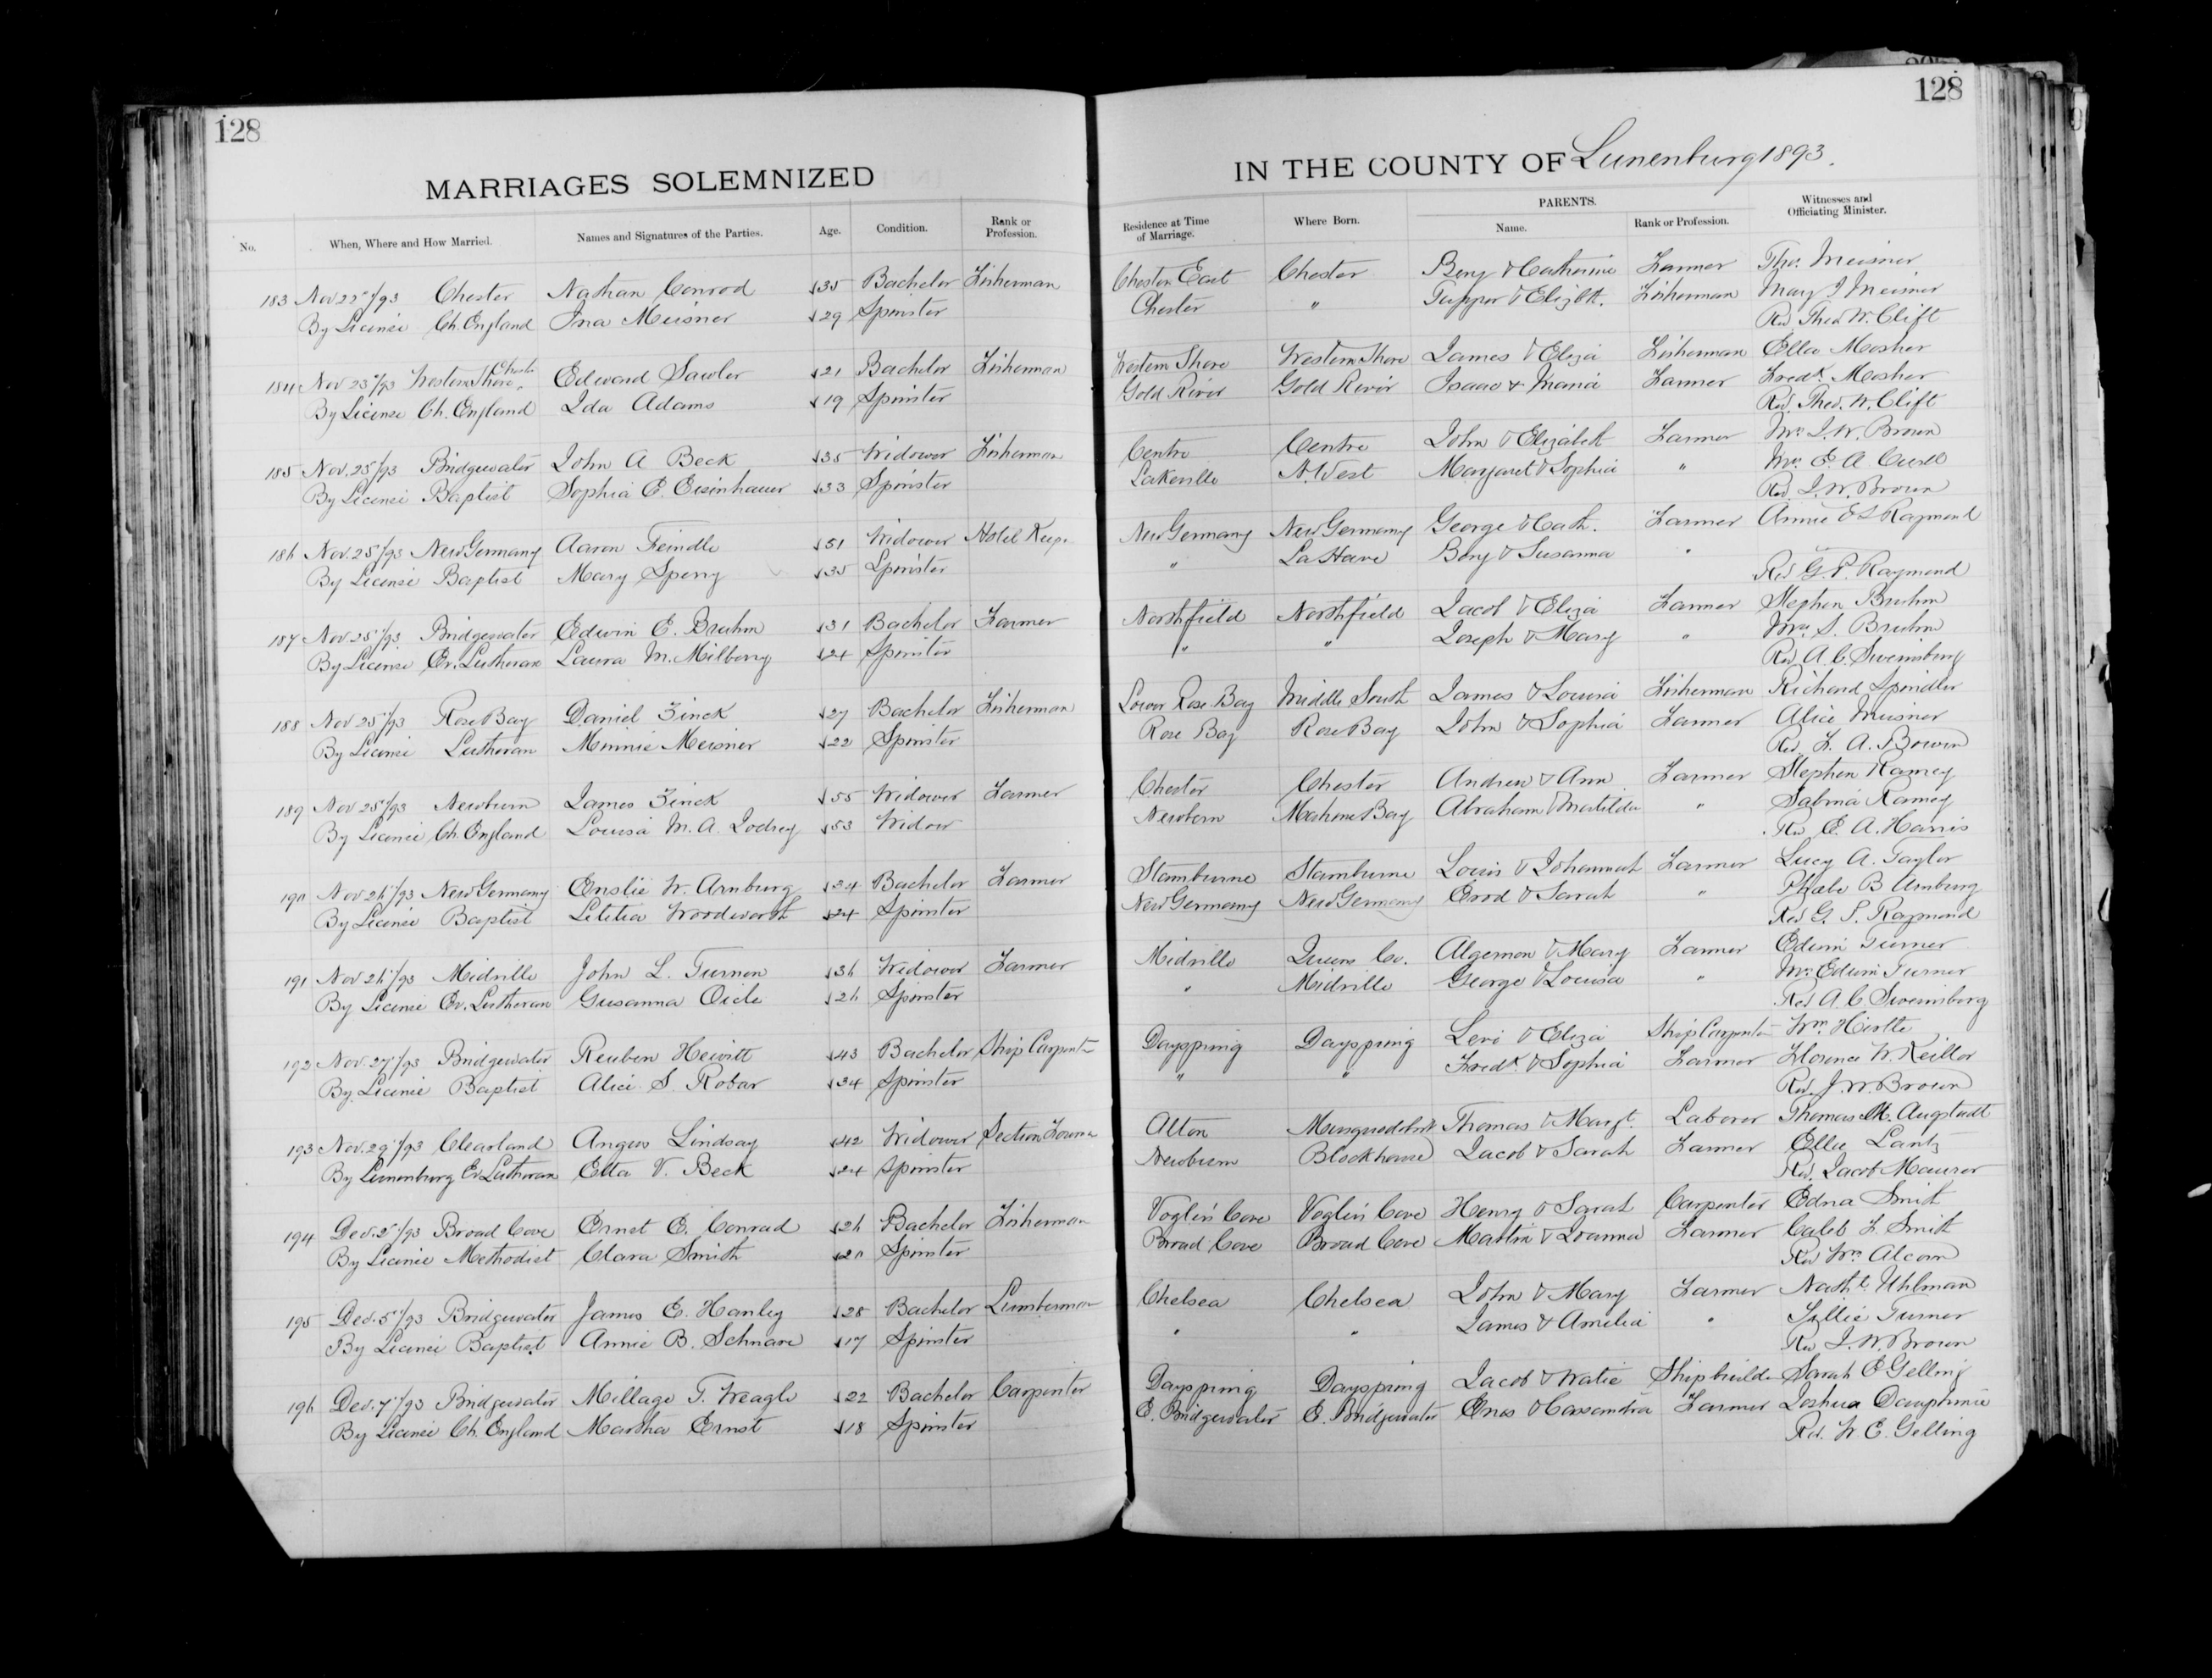 128
128
MARRIAGES SOLEMNIZED IN THE COUNTY OF Lunenburg 1893.
No. When, Where and How Married. Names and Signatures of the Parties. Age. Condition. Rank or Profession. Residence at Time of Marriage. Where Born. PARENTS. Name. Rank or Profession. Witnesses and Officiating Minister.
183 Nov 22"/93 Chester Nathan Conrod 35 Bachelor Fisherman Chester East Chester Benj & Catherine Farmer Thos. Meisner
By License Ch. England Ina Meisner 29 Spinster Chester " Tupper & Elizbth. Fisherman Mary J Meisner
Rev Theo W. Clift
184 Nov 23"/93 Western Shore, Chester Edward Sawler 21 Bachelor Fisherman Western Shore Western Shore James & Eliza Fisherman Ella Mosher
By License Ch. England Ida Adams 19 Spinster Gold River Gold River Isaac & Maria Farmer Fredk. Mosher
Rev. Theo. W. Clift
185 Nov. 25"/93 Bridgewater John A Beck 35 Widower Fisherman Centre Centre John & Elizabeth Farmer Mrs J. W. Brown
By License Baptist Sophia E. Eisenhauer 33 Spinster Lakeville N. West Margaret & Sophia " Mrs. E. A.
Rev. J. W. Brown
186 Nov. 25"/93 New Germany Aaron Feindle 51 Widower Hotel Keep. New Germany New Germany George & Cath. Farmer Annie E S Raymond
By License Baptist Mary Sperry 35 Spinster " La Have Benj & Susanna "
Rev G. P. Raymond
187 Nov. 25"/93 Bridgewater Edwin E. Bruhm 31 Bachelor Farmer Northfield Northfield Jacob & Eliza Farmer Stephen Bruhm
By License Ev. Lutheran Laura M. Milberry 24 Spinster " " Joseph & Mary " Mrs. S. Bruhm
Rev. A. C. Swensburg
188 Nov 25"/93 Rose Bay Daniel Zinck 27 Bachelor Fisherman Lower Rose Bay Middle South James & Louisa Fisherman Richard Spindler
By License Lutheran Minnie Meisner 22 Spinster Rose Bay Rose Bay John & Sophia Farmer Alice Meisner
Rev. F. A. Bowers
189 Nov 25"/93 Newburn James Zinck 55 Widower Farmer Chester Chester Andrew & Ann Farmer Stephen Ramey
By License Ch. England Louisa M. A. Lodrey 53 Widow Newbern Mahone Bay Abraham & Matilda " Sabina Ramey
Rev E. A. Harris
190 Nov 26"/93 New Germany Enslie W. Arnburg 24 Bachelor Farmer Stamburne Stamburne Louis & Johannah Farmer Lucy A. Taylor
By License Baptist Letitia Woodworth 24 Spinster New Germany New Germany & Sarah " Phebe B Arnburg
Rev G. P. Raymond
191 Nov 26"/93 Midville John L. Turner 36 Widower Farmer Midville Queens Co. Algernon & Mary Farmer Edwin Turner
By License Ev. Lutheran Susanna Oicle 26 Spinster " Midville George & Louisa " Mrs Edwin Turner
Rev A. C. Swensburg
192 Nov. 27"/93 Bridgewater Reuben Hewitt 43 Bachelor Ship Carpenter Dayspring Dayspring Levi & Eliza Ship Carpenter Wm. Hirtle
By License Baptist Alice S. Robar 34 Spinster " " Fredk. & Sophia Farmer Florence W. Keillor
Rev. J. W. Brown
193 Nov. 29"/93 Clearland Angus Lindsay 42 Widower Section Foreman Alton Musquodoboit Thomas & Margt. Laborer Thomas M. Augstadt
By Lunenburg Ev Lutheran Etta V. Beck 24 Spinster Newburn Blockhouse Jacob & Sarah Farmer Ellie Lantz
Rev. Jacob Maurer
194 Dec. 2"/93 Broad Cove Ernst E. Conrad 26 Bachelor Fisherman Voglin Cove Voglin Cove Henry & Sarah Carpenter Edna Smith
By License Methodist Clara Smith 20 Spinster Broad Cove Broad Cove Martin & Joanna Farmer Caleb F. Smith
Rev Wm Alcorn
195 Dec. 5"/93 Bridgewater James E. Hanley 28 Bachelor Lumberman Chelsea Chelsea John & Mary Farmer Nathl. Uhlman
By License Baptist Annie B. Schnare 17 Spinster " " James & Amelia " Lillie Turner
Rev J. W. Brown
196 Dec. 7"/93 Bridgewater Millage T. Weagle 22 Bachelor Carpenter Dayspring Dayspring Jacob & Watie Shipbuilder Sarah E Gelling
By License Ch. England Martha Ernst 18 Spinster E. Bridgewater E. Bridgewater Enos & Cassandra Farmer Joshua Dauphinie
Rev. W. E. Gelling